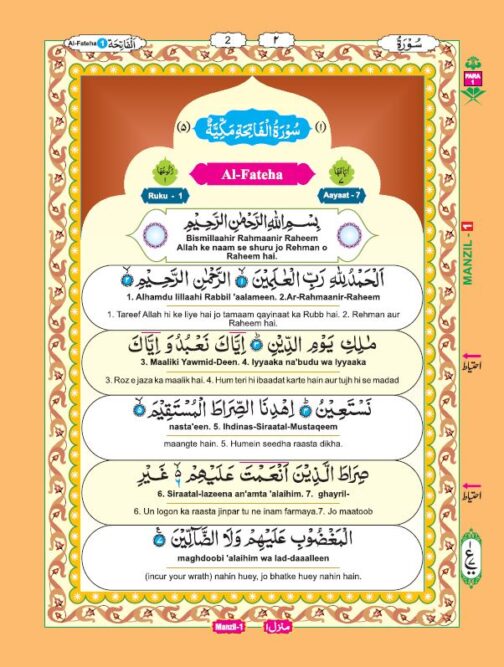 Al-Fateha 1 اَلْفَاتِحَة
2
٢
سُوْرَةُ
PARA
1
(٥) سُوْرَةُ الْفَاتِحَةِ مَكِّيَّةٌ (١)
رُكُوْعُهَا
١
اٰيَاتُهَا
٧
Al-Fateha
Ruku - 1
Aayaat - 7
MANZIL - 1
بِسْمِ اللّٰهِ الرَّحْمٰنِ الرَّحِيْمِ
Bismillaahir Rahmaanir Raheem
Allah ke naam se shuru jo Rehman o
Raheem hai.
اَلْحَمْدُ لِلّٰهِ رَبِّ الْعٰلَمِيْنَ ١ الرَّحْمٰنِ الرَّحِيْمِ ٢
1. Alhamdu lillaahi Rabbil 'aalameen. 2.Ar-Rahmaanir-Raheem
1. Tareef Allah hi ke liye hai jo tamaam qayinaat ka Rubb hai. 2. Rehman aur
Raheem hai.
مٰلِكِ يَوْمِ الدِّيْنِ ٣ اِيَّاكَ نَعْبُدُ وَ اِيَّاكَ
3. Maaliki Yawmid-Deen. 4. Iyyaaka na'budu wa Iyyaaka
3. Roz e jaza ka maalik hai. 4. Hum teri hi ibaadat karte hain aur tujh hi se madad
احتیاط
نَسْتَعِيْنُ ٤ اِهْدِنَا الصِّرَاطَ الْمُسْتَقِيْمَ ٥
nasta'een. 5. Ihdinas-Siraatal-Mustaqeem
maangte hain. 5. Humein seedha raasta dikha.
صِرَاطَ الَّذِيْنَ اَنْعَمْتَ عَلَيْهِمْ ٦ غَيْرِ
6. Siraatal-lazeena an'amta 'alaihim. 7. ghayril-
6. Un logon ka raasta jinpar tu ne inam farmaya.7. Jo maatoob
احتیاط
الْمَغْضُوْبِ عَلَيْهِمْ وَلَا الضَّآلِّيْنَ ٧
maghdoobi 'alaihim wa lad-daaalleen
(incur your wrath) nahin huey, jo bhatke huey nahin hain.
Manzil-1
منزل ١